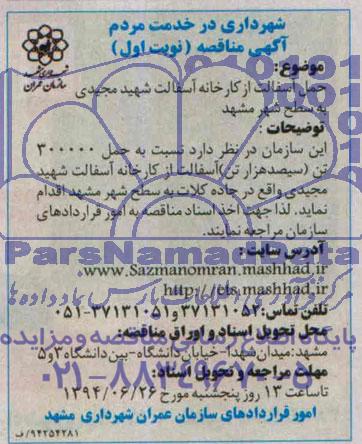 شهرداری در خدمت مردم
آگهی مناقصه (نوبت اول)
سازمان عمران
موضوع:
حمل آسفالت از کارخانه آسفالت شهید مجیدی
به سطح شهر مشهد
توضیحات :
این سازمان در نظر دارد نسبت به حمل ۳۰۰۰۰۰
تن (سیصدهزار تن) آسفالت از کارخانه آسفالت شهید
مجیدی واقع در جاده کلات به سطح شهر مشهد اقدام
نماید. لذا جهت اخذ اسناد مناقصه به امور قراردادهای
سازمان مراجعه نمایند.
ParsNamadData
آدرس سایت:
www.Sazmanomran.mashhad.ir
http://ets.mashhad.ir
تلفن تماس: ۳۷۱۳۱۰۵۲ و ۳۷۱۳۱۰۵۱-۰۵۱
محل تحویل اسناد و اوراق مناقصه:
مشهد: میدان شهدا - خیابان دانشگاه - بین دانشگاه ۳ و ۵
مهلت مراجعه و تحویل اسناد:
تا ساعت ۱۳ روز پنجشنبه مورخ ۱۳۹۴/۰۶/۲۶
امور قراردادهای سازمان عمران شهرداری مشهد
۹۴۲۵۴۲۸۱/ف